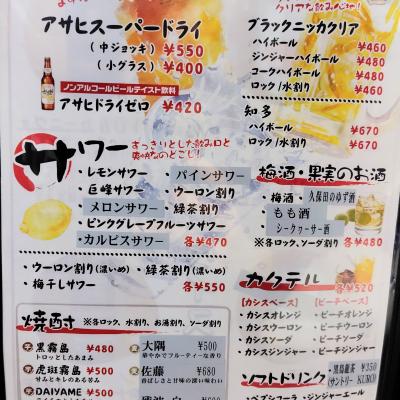 クリアな飲み心地!
アサヒスーパードライ
(中ジョッキ) ¥550
(小グラス) ¥400
ノンアルコールビールテイスト飲料
アサヒドライゼロ ¥420
ブラックニッカクリア
ハイボール ¥460
ジンジャーハイボール ¥480
コークハイボール ¥480
ロック/水割り ¥460
知多
ハイボール ¥670
ロック/水割り ¥670
サワー
すっきりとした飲み口と
爽快なのどごし!
・レモンサワー ・パインサワー
・巨峰サワー ・ウーロン割り
・メロンサワー ・緑茶割り
・ピンクグレープフルーツサワー
・カルピスサワー 各¥470
・ウーロン割り(濃いめ) ・緑茶割り(濃いめ)
・梅干しサワー 各¥550
梅酒・果実のお酒
・梅酒 ・久保田のゆず酒
・もも酒
・シークヮーサー酒
※各ロック、ソーダ割り 各¥480
カクテル 各¥520
【カシスベース】 【ピーチベース】
・カシスオレンジ ・ピーチオレンジ
・カシスウーロン ・ピーチウーロン
・カシスソーダ ・ピーチソーダ
・カシスジンジャー ・ピーチジンジャー
焼酎 ※各ロック、水割り、お湯割り、ソーダ割り
黒霧島 ¥480
トロッとしたあまみ
虎斑霧島 ¥500
甘みとキレのある芳
DAIYAME ¥500
大隅 ¥500
華やかでフルーティな香り
佐藤 ¥680
香ばしさと甘味の深い味わい
ソフトドリンク
黒烏龍茶 ¥350
(サントリー KURO)
・ペプシコーラ ・ジンジャーエール